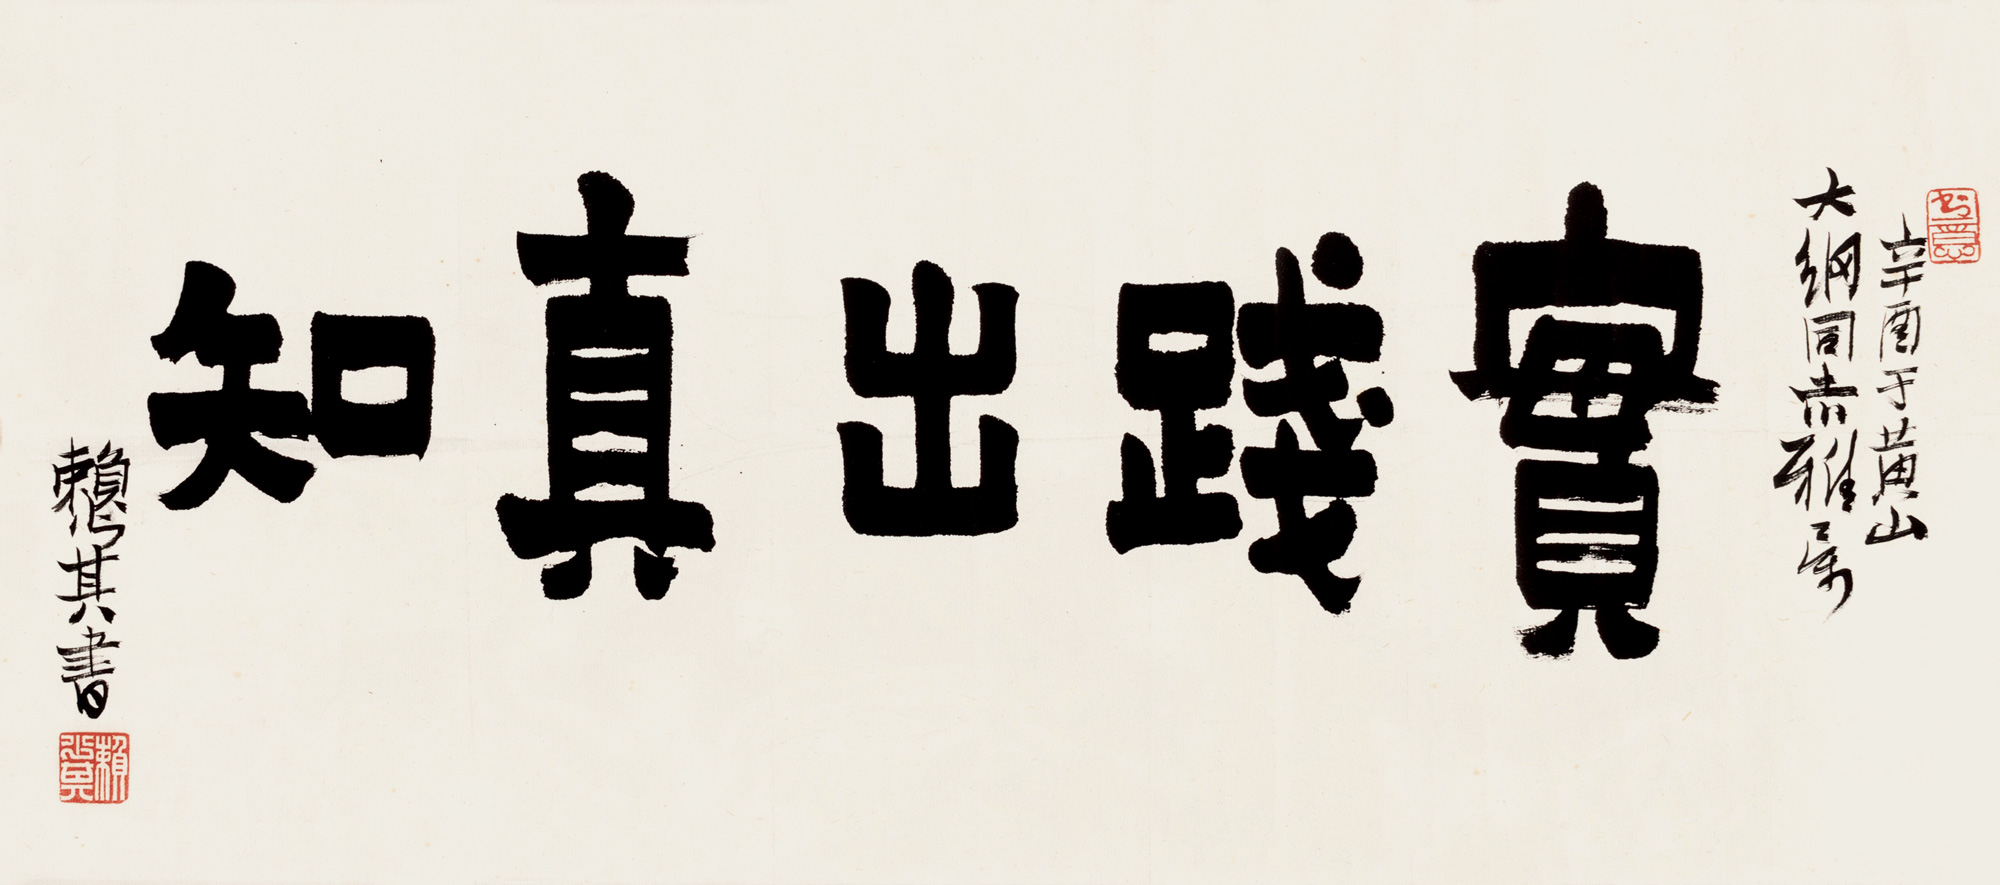 辛酉于黄山
大綱同志雅属
實踐出真知
賴少其書
賴少其